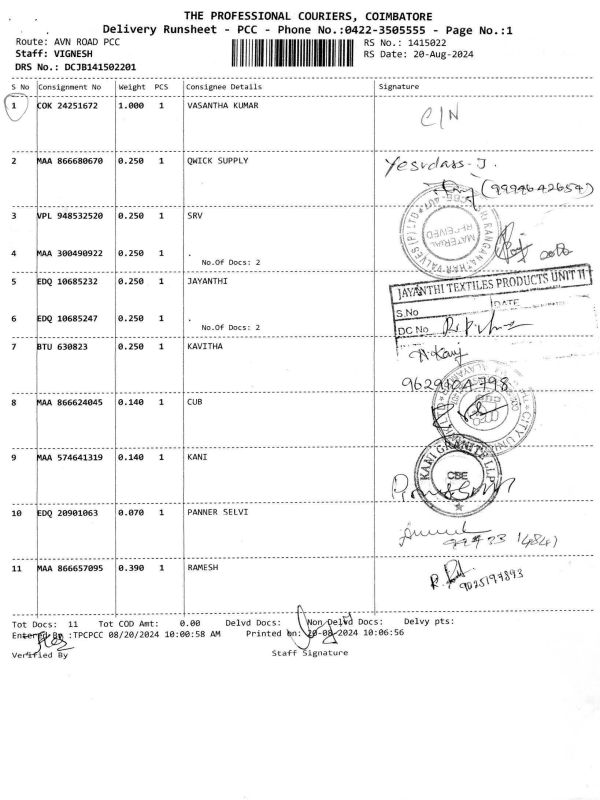 THE PROFESSIONAL COURIERS, COIMBATORE
Delivery Runsheet - PCC - Phone No.:0422-3505555 - Page No.:1
Route: AVN ROAD PCC RS No.: 1415022
Staff: VIGNESH RS Date: 20-Aug-2024
DRS No.: DCJB141502201
S No Consignment No Weight PCS Consignee Details Signature
1 COK 24251672 1.000 1 VASANTHA KUMAR C/N
2 MAA 866680670 0.250 1 QWICK SUPPLY Yesudass-J.
(9994642654)
3 VPL 948532520 0.250 1 SRV
MATERIAL RECEIVED
4 MAA 300490922 0.250 1 .
No.Of Docs: 2
5 EDQ 10685232 0.250 1 JAYANTHI
JAYANTHI TEXTILES PRODUCTS UNIT II
S.No DATE
DC No
6 EDQ 10685247 0.250 1 .
No.Of Docs: 2
7 BTU 630823 0.250 1 KAVITHA
9629104798
8 MAA 866624045 0.140 1 CUB
CITY UNI
9 MAA 574641319 0.140 1 KANI
KANI GRANITE LLP
CBE
10 EDQ 20901063 0.070 1 PANNER SELVI
11 MAA 866657095 0.390 1 RAMESH
9025197893
Tot Docs: 11 Tot COD Amt: 0.00 Delvd Docs: Non Delvd Docs: Delvy pts:
Entered By :TPCPCC 08/20/2024 10:00:58 AM Printed on: 20-08-2024 10:06:56
Verified By Staff Signature